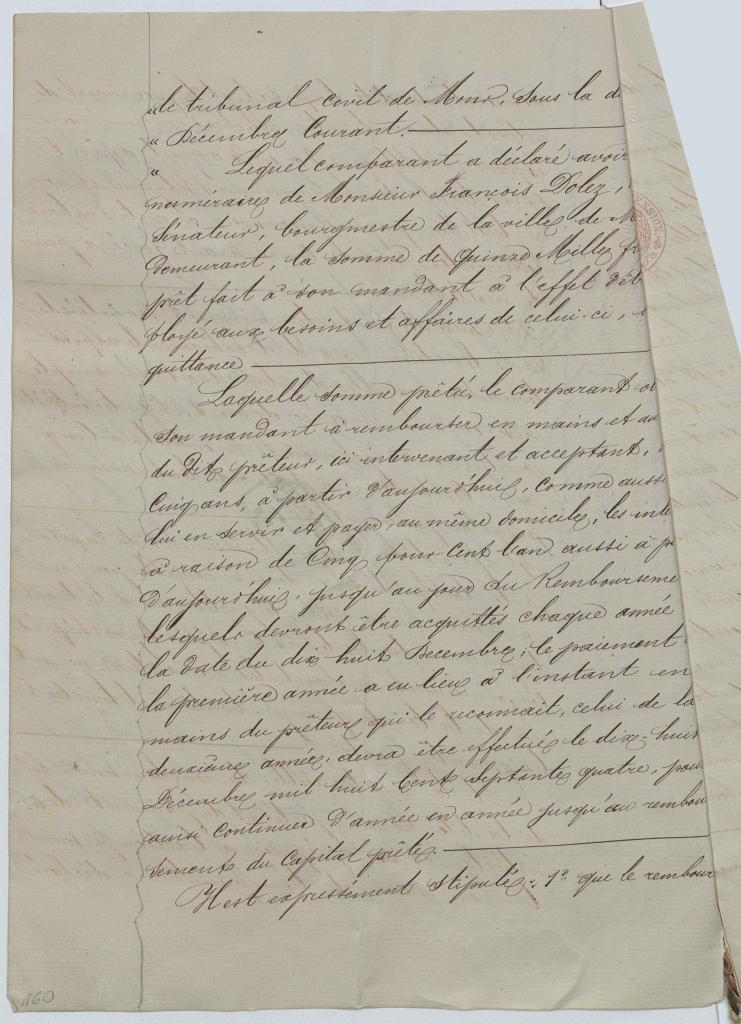 "le tribunal civil de Mons, sous la d
" Décembre Courant.
" Lequel comparant a déclaré avoir
numéraire de Monsieur François Dolez,
Sénateur, bourgmestre de la ville de M
demeurant, la somme de Quinze Mille fr
prêt fait à son mandant à l'effet d'êt
ployé aux besoins et affaires de celui-ci,
quittance
Laquelle somme prêtée, le comparant o
son mandant à rembourser en mains et au
du dit prêteur, ici intervenant et acceptant,
Cinq ans, à partir d'aujourd'hui, comme auss
lui en servir et payer, au même domicile, les inté
à raison de Cinq pour Cent l'an aussi à p
d'aujourd'hui, jusqu'au jour du Rembourseme
lesquels devront être acquittés chaque année
la date du dix huit Décembre; le paiement
la première année a eu lieu à l'instant en
mains du prêteur qui le reconnait, celui de la
deuxième année, devra être effectué le dix-huit
Décembre mil huit Cent Septante quatre, pour
ainsi continuer d'année en année jusqu'au rembou
sement du Capital prêté.
Il est expressément stipulé: 1° que le rembour
160